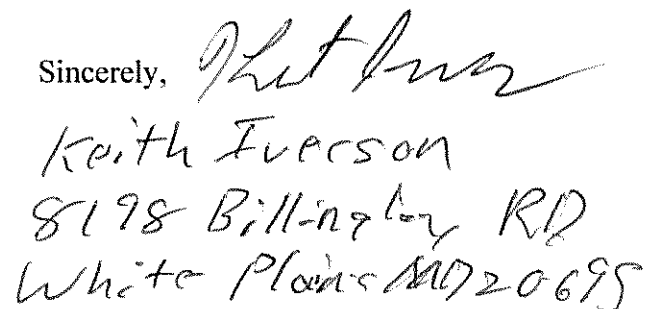 Sincerely,
Keith Iverson
8198 Billingley RD
White Plains MD 20695